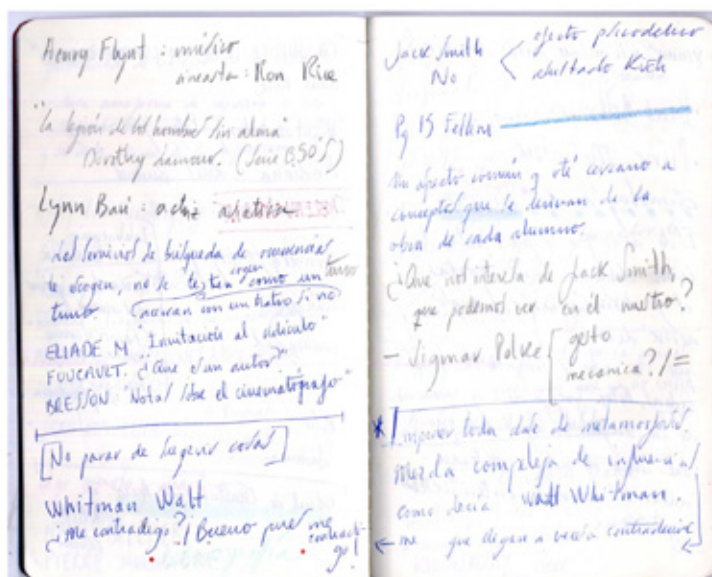 Henry Flynt : músico
cineasta : Ron Rice
"la legión de los hombres sin alma"
Dorothy Lamour. (Serie B, 50's)
Lynn Bari : actriz
Los servicios de búsqueda de
te cogen, no se como un
turno
ELIADE M. "Invitación al ridículo"
FOUCAULT. ¿Qué es un autor?"
BRESSON "Notas sobre el cinematógrafo"
[No parar de sugerir cosas]
Whitman Walt
¿me contradigo? ¡Bueno pues me
contradigo!
Jack Smith
No
efecto psicodélico
Kich
Pg 15 Fellini
Un aspecto común y cercano a
conceptos que se derivan de la
obra de cada alumno.
¿Que nos interesa de Jack Smith,
que podemos ver en él nuestro?
– Sigmar Polke
gesto
mecánica? / =
* toda clase de metamorfosis.
Mezcla compleja de influencias
como decía Walt Whitman.
me que llegan a veces a contradecirse